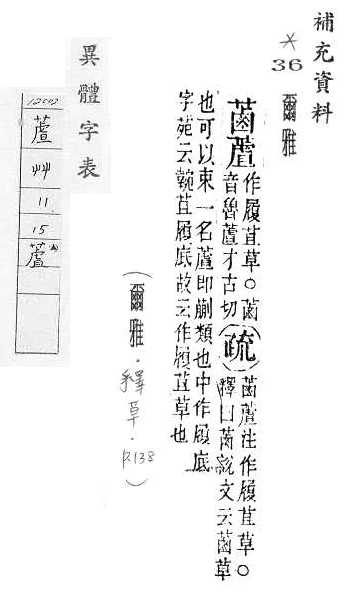 補充資料
*36
爾雅
蓾蔖
作履苴草。蓾
音魯蔖才古切
疏
蓾蔖注作履苴草。
釋曰蓾說文云蓾草
也可以束一名蔖即蒯類也中作履底
字苑云鞔苴履底故云作履苴草也
(爾雅.釋草.P.138)
異體字表
蔖
艸
11
15
蔖